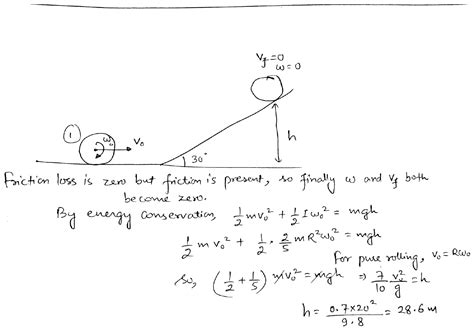 V_f=0
ω=0
①
ω₀
V₀
30°
h
Friction loss is zero but friction is present, so finally ω and V_f both
become zero.
By energy conservation, 1/2 mv₀² + 1/2 Iω₀² = mgh
1/2 m v₀² + 1/2 · 2/5 mR²ω₀² = mgh
For pure rolling, v₀ = Rω₀
So, (1/2 + 1/5) mv₀² = mgh ⇒ 7/10 v₀²/g = h
h = 0.7×20²/9.8 = 28.6 m